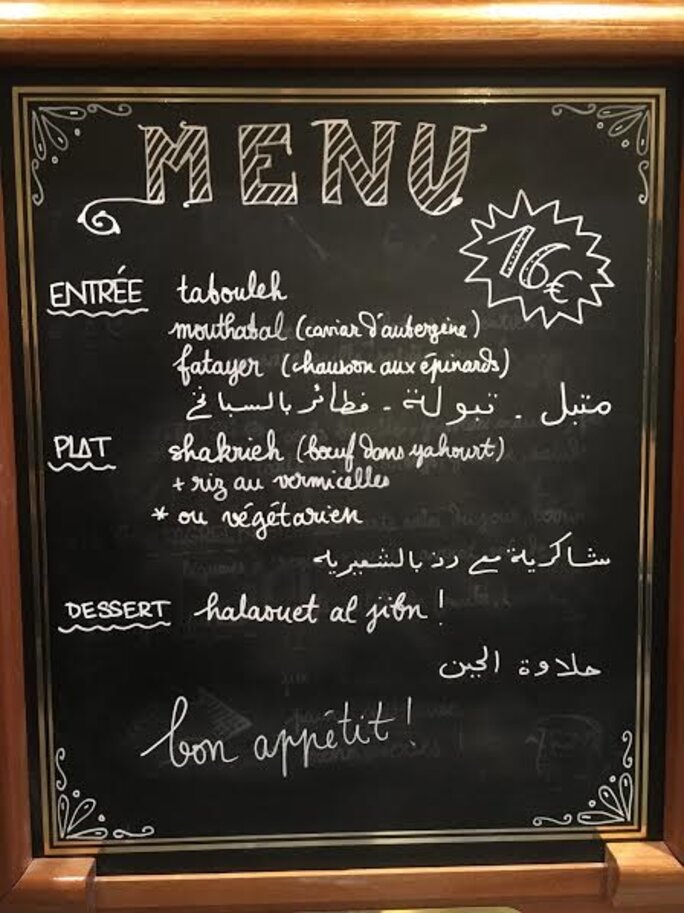 MENU
16€
ENTRÉE tabouleh
mouthabal (caviar d'aubergine)
fatayer (chausson aux épinards)
متبل - تبولة - فطائر بالسبانخ
PLAT shakrieh (bœuf dans yahourt)
+ riz au vermicelles
* ou végétarien
شاكرية مع رز بالشعيريه
DESSERT halaouet al jibn !
حلاوة الجبن
bon appétit !